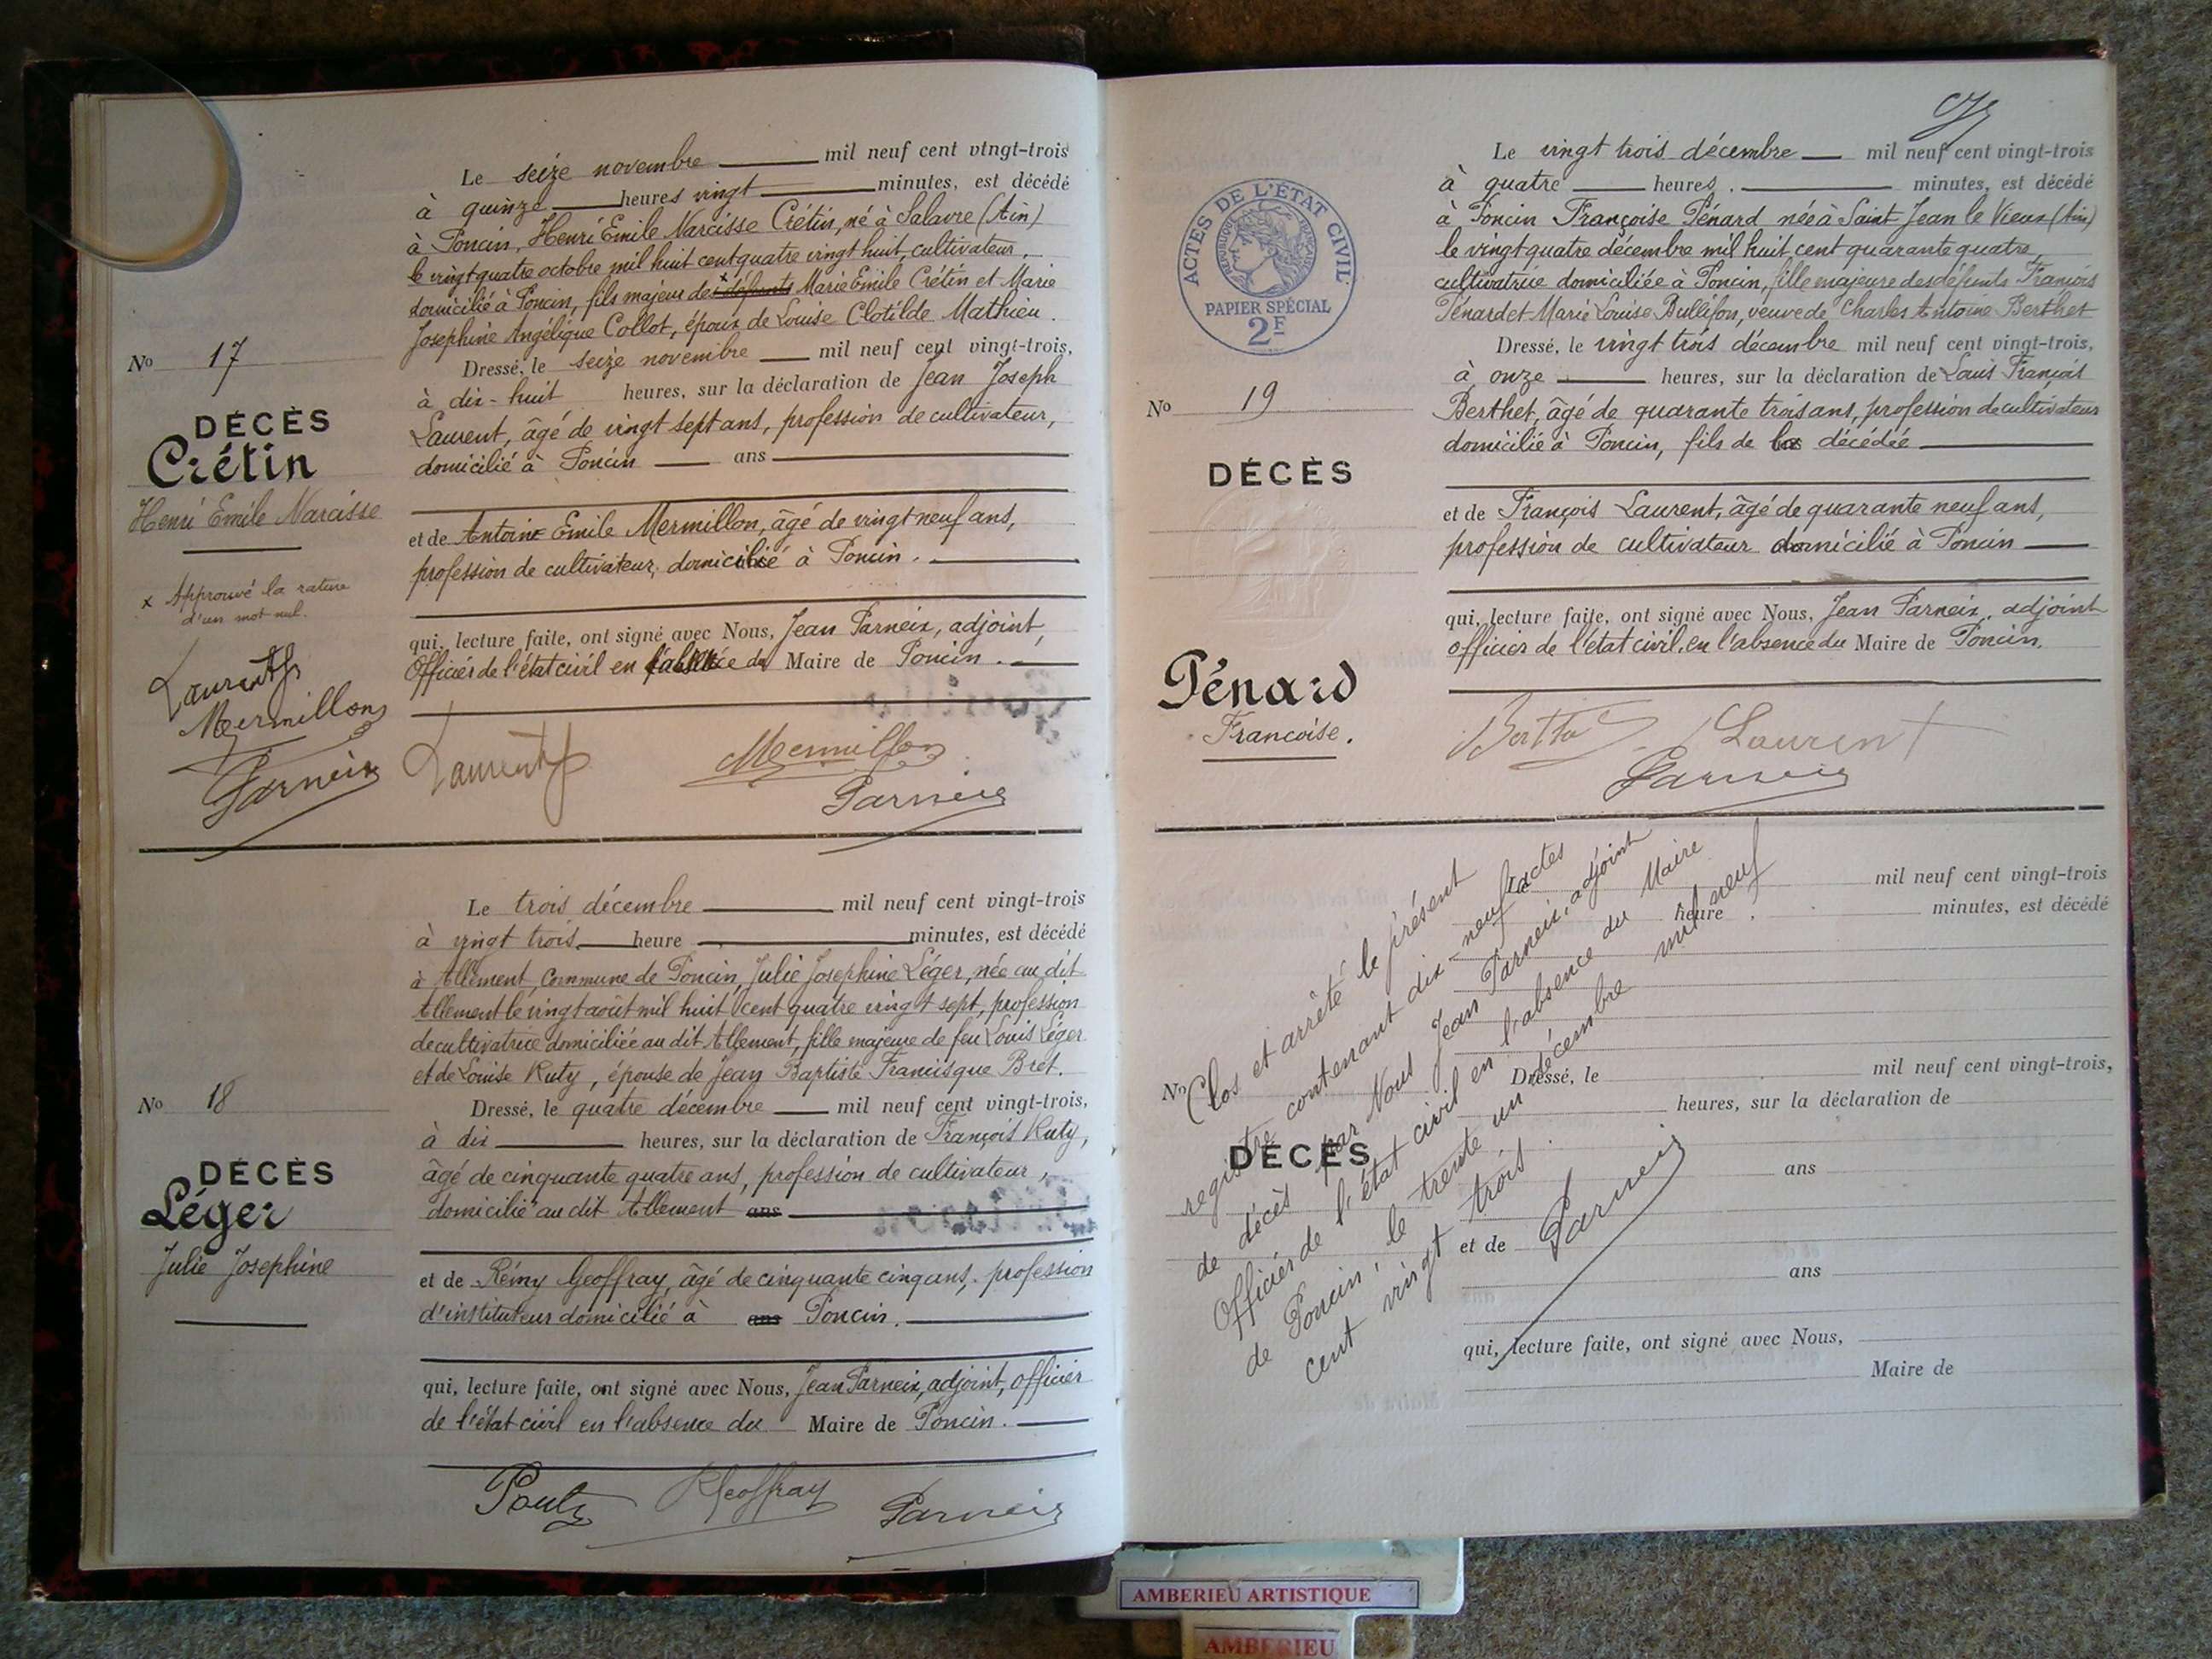 Le seize novembre mil neuf cent vingt-trois
à quinze heures vingt minutes, est décédé
à Poncin, Henri Emile Narcisse Crétin, né à Salavre (Ain)
le vingt quatre octobre mil huit cent quatre vingt huit, cultivateur,
domicilié à Poncin, fils majeur de x défunts Marie Emile Crétin et Marie
Josephine Angélique Collot, époux de Louise Clotilde Mathieu.
No 17
Dressé, le seize novembre mil neuf cent vingt-trois,
à dix-huit heures, sur la déclaration de Jean Joseph
Laurent, âgé de vingt sept ans, profession de cultivateur,
domicilié à Poncin ans
DÉCÈS
Crétin
Henri Emile Narcisse
et de Antoine Emile Mermillon, âgé de vingt neuf ans,
profession de cultivateur, domicilié à Poncin.
x Approuvé la rature
d'un mot nul.
qui, lecture faite, ont signé avec Nous, Jean Parneix, adjoint,
Officier de l'état civil en l'absence du Maire de Poncin.
Laurent
Mermillon
Parneix
Laurent Mermillon
Parneix
Le trois décembre mil neuf cent vingt-trois
à vingt trois heure minutes, est décédé
à Allement, commune de Poncin, Julie Josephine Léger, née au dit
Allement le vingt août mil huit cent quatre vingt sept, profession
de cultivatrice domiciliée au dit Allement, fille majeure de feu Louis Léger
et de Louise Ruty, épouse de Jean Baptiste Francisque Bret.
No 18
Dressé, le quatre décembre mil neuf cent vingt-trois,
à dix heures, sur la déclaration de François Ruty,
âgé de cinquante quatre ans, profession de cultivateur,
domicilié au dit Allement ans
DÉCÈS
Léger
Julie Josephine
et de Rémy Geoffray, âgé de cinquante cinq ans, profession
d'instituteur domicilié à ans Poncin.
qui, lecture faite, ont signé avec Nous, Jean Parneix, adjoint, officier
de l'état civil en l'absence du Maire de Poncin.
Geoffray Parneix
Le vingt trois décembre mil neuf cent vingt-trois
à quatre heures minutes, est décédé
à Poncin Françoise Pénard née à Saint Jean le Vieux (Ain)
le vingt quatre décembre mil huit cent quarante quatre,
cultivatrice domiciliée à Poncin, fille majeure des défunts François
Pénard et Marie Louise Bullifon, veuve de Charles Antoine Berthet
ACTES DE L'ÉTAT CIVIL
RÉPUBLIQUE FRANÇAISE
PAPIER SPÉCIAL
2F
No 19
Dressé, le vingt trois décembre mil neuf cent vingt-trois,
à onze heures, sur la déclaration de Louis François
Berthet, âgé de quarante trois ans, profession de cultivateur
domicilié à Poncin, fils de la décédée
DÉCÈS
Pénard
Francoise.
et de François Laurent, âgé de quarante neuf ans,
profession de cultivateur domicilié à Poncin
qui, lecture faite, ont signé avec Nous, Jean Parneix, adjoint
officier de l'état civil, en l'absence du Maire de Poncin.
Berthet Laurent
Parneix
mil neuf cent vingt-trois
heure minutes, est décédé
No
Dressé, le mil neuf cent vingt-trois,
heures, sur la déclaration de
DÉCÈS
ans
et de
ans
qui, lecture faite, ont signé avec Nous,
Maire de
Clos et arrêté le présent
registre contenant dix-neuf actes
de décès par Nous Jean Parneix, adjoint
Officier de l'état civil en l'absence du Maire
de Poncin, le trente un décembre mil neuf
cent vingt trois.
Parneix
AMBERIEU ARTISTIQUE
AMBERIEU